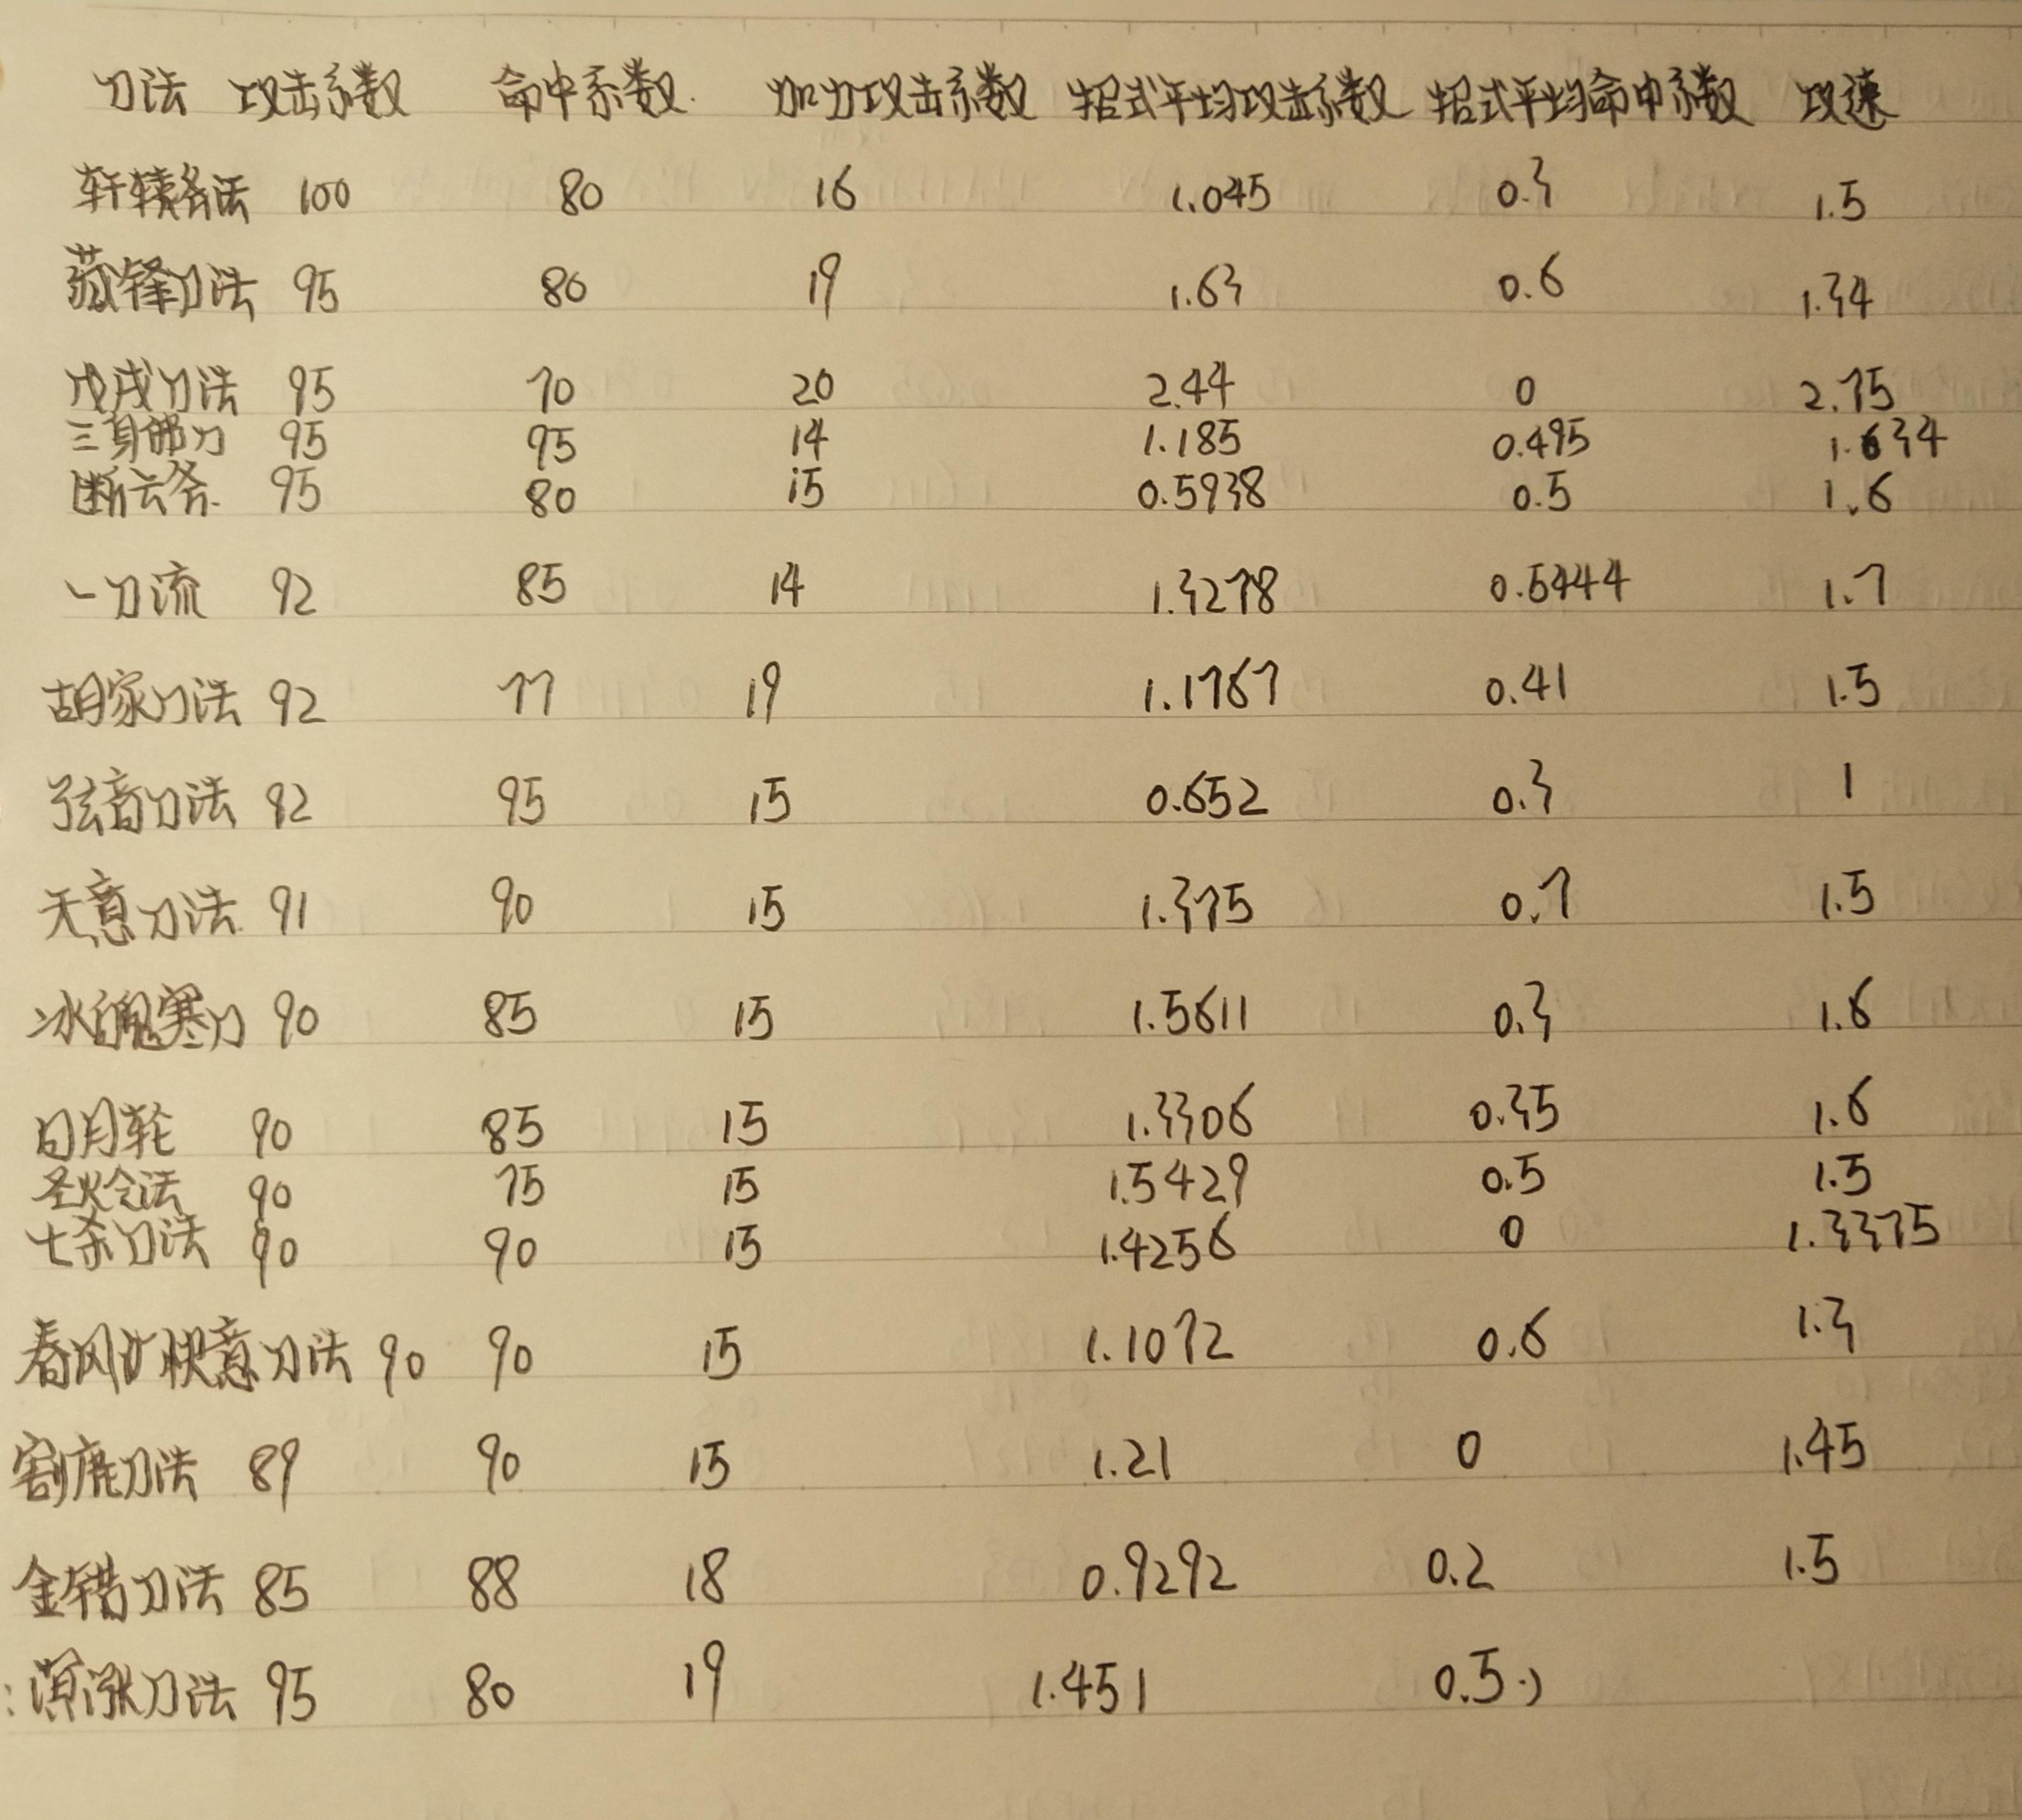 刀法 攻击系数 命中系数 加力攻击系数 招式平均攻击系数 招式平均命中系数 攻速
轩辕条法 100 80 16 1.045 0.3 1.5
藏锋刀法 95 80 19 1.63 0.6 1.34
戊戌刀法 95 70 20 2.44 0 2.75
三身部刀 95 95 14 1.185 0.495 1.634
断云条 95 80 15 0.5938 0.5 1.6
一刀流 92 85 14 1.3278 0.5444 1.7
胡家刀法 92 77 19 1.1767 0.41 1.5
弦音刀法 92 95 15 0.652 0.3 1
天意刀法 91 90 15 1.375 0.7 1.5
冰魄寒刀 90 85 15 1.5611 0.3 1.6
日月轮 90 85 15 1.3306 0.35 1.6
圣火令法 90 75 15 1.5429 0.5 1.5
七杀刀法 90 90 15 1.4256 0 1.3375
春风快意刀法 90 90 15 1.1072 0.6 1.3
割鹿刀法 89 90 15 1.21 0 1.45
金错刀法 85 88 18 0.9292 0.2 1.5
刀法 95 80 19 1.451 0.5